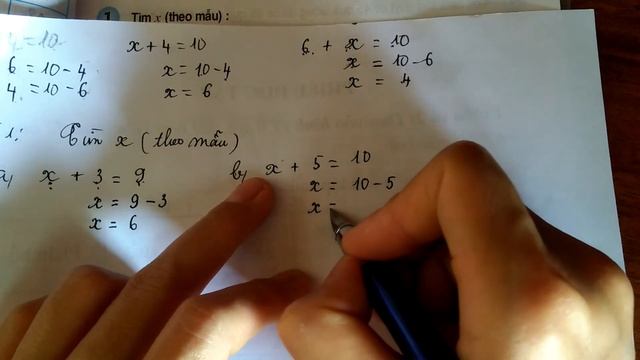 1 Tìm x (theo mẫu) :
x + 4 = 10
6 + x = 10
6 = 10 - 4
x = 10 - 4
x = 10 - 6
4 = 10 - 6
x = 6
x = 4
Tìm x (theo mẫu)
a, x + 3 = 9
b, x + 5 = 10
x = 9 - 3
x = 10 - 5
x = 6
x =